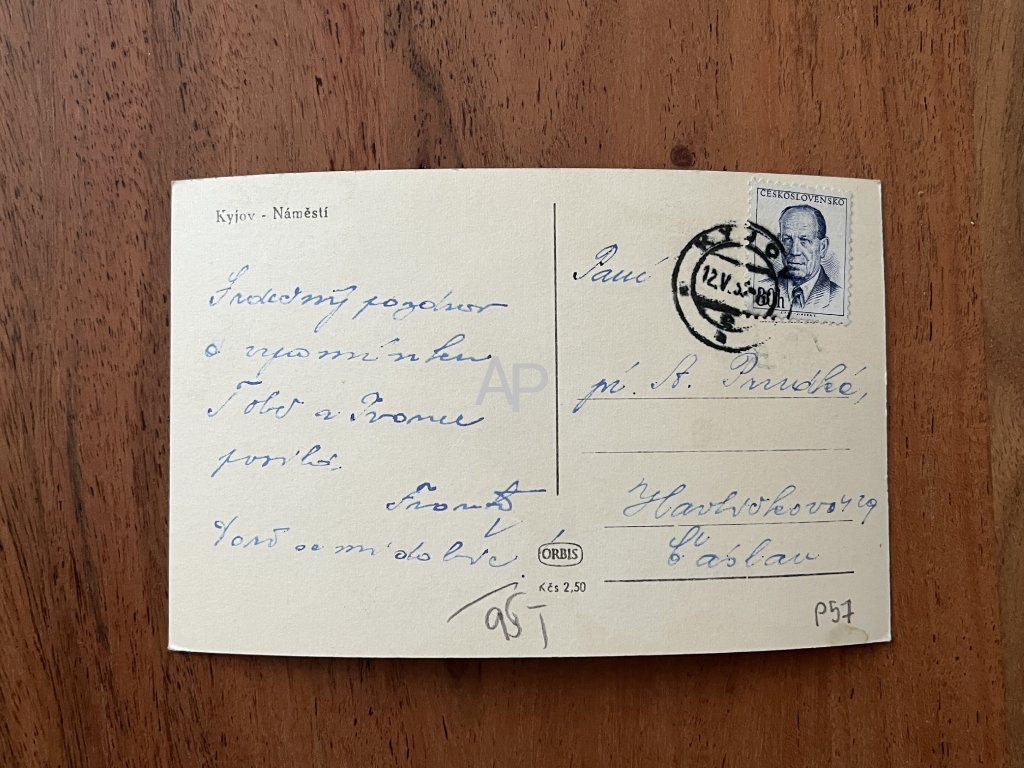 Kyjov - Náměstí
Srdečný pozdrav
a vzpomínku
Tobě a Ivance
posílá
Franta
se mi dobře.
ORBIS
Kčs 2,50
95
ČESKOSLOVENSKO
80h
KYJOV
12.V.5
Paní
pí. A. Prudká,
Havlíčkova
Čáslav
P57
AP